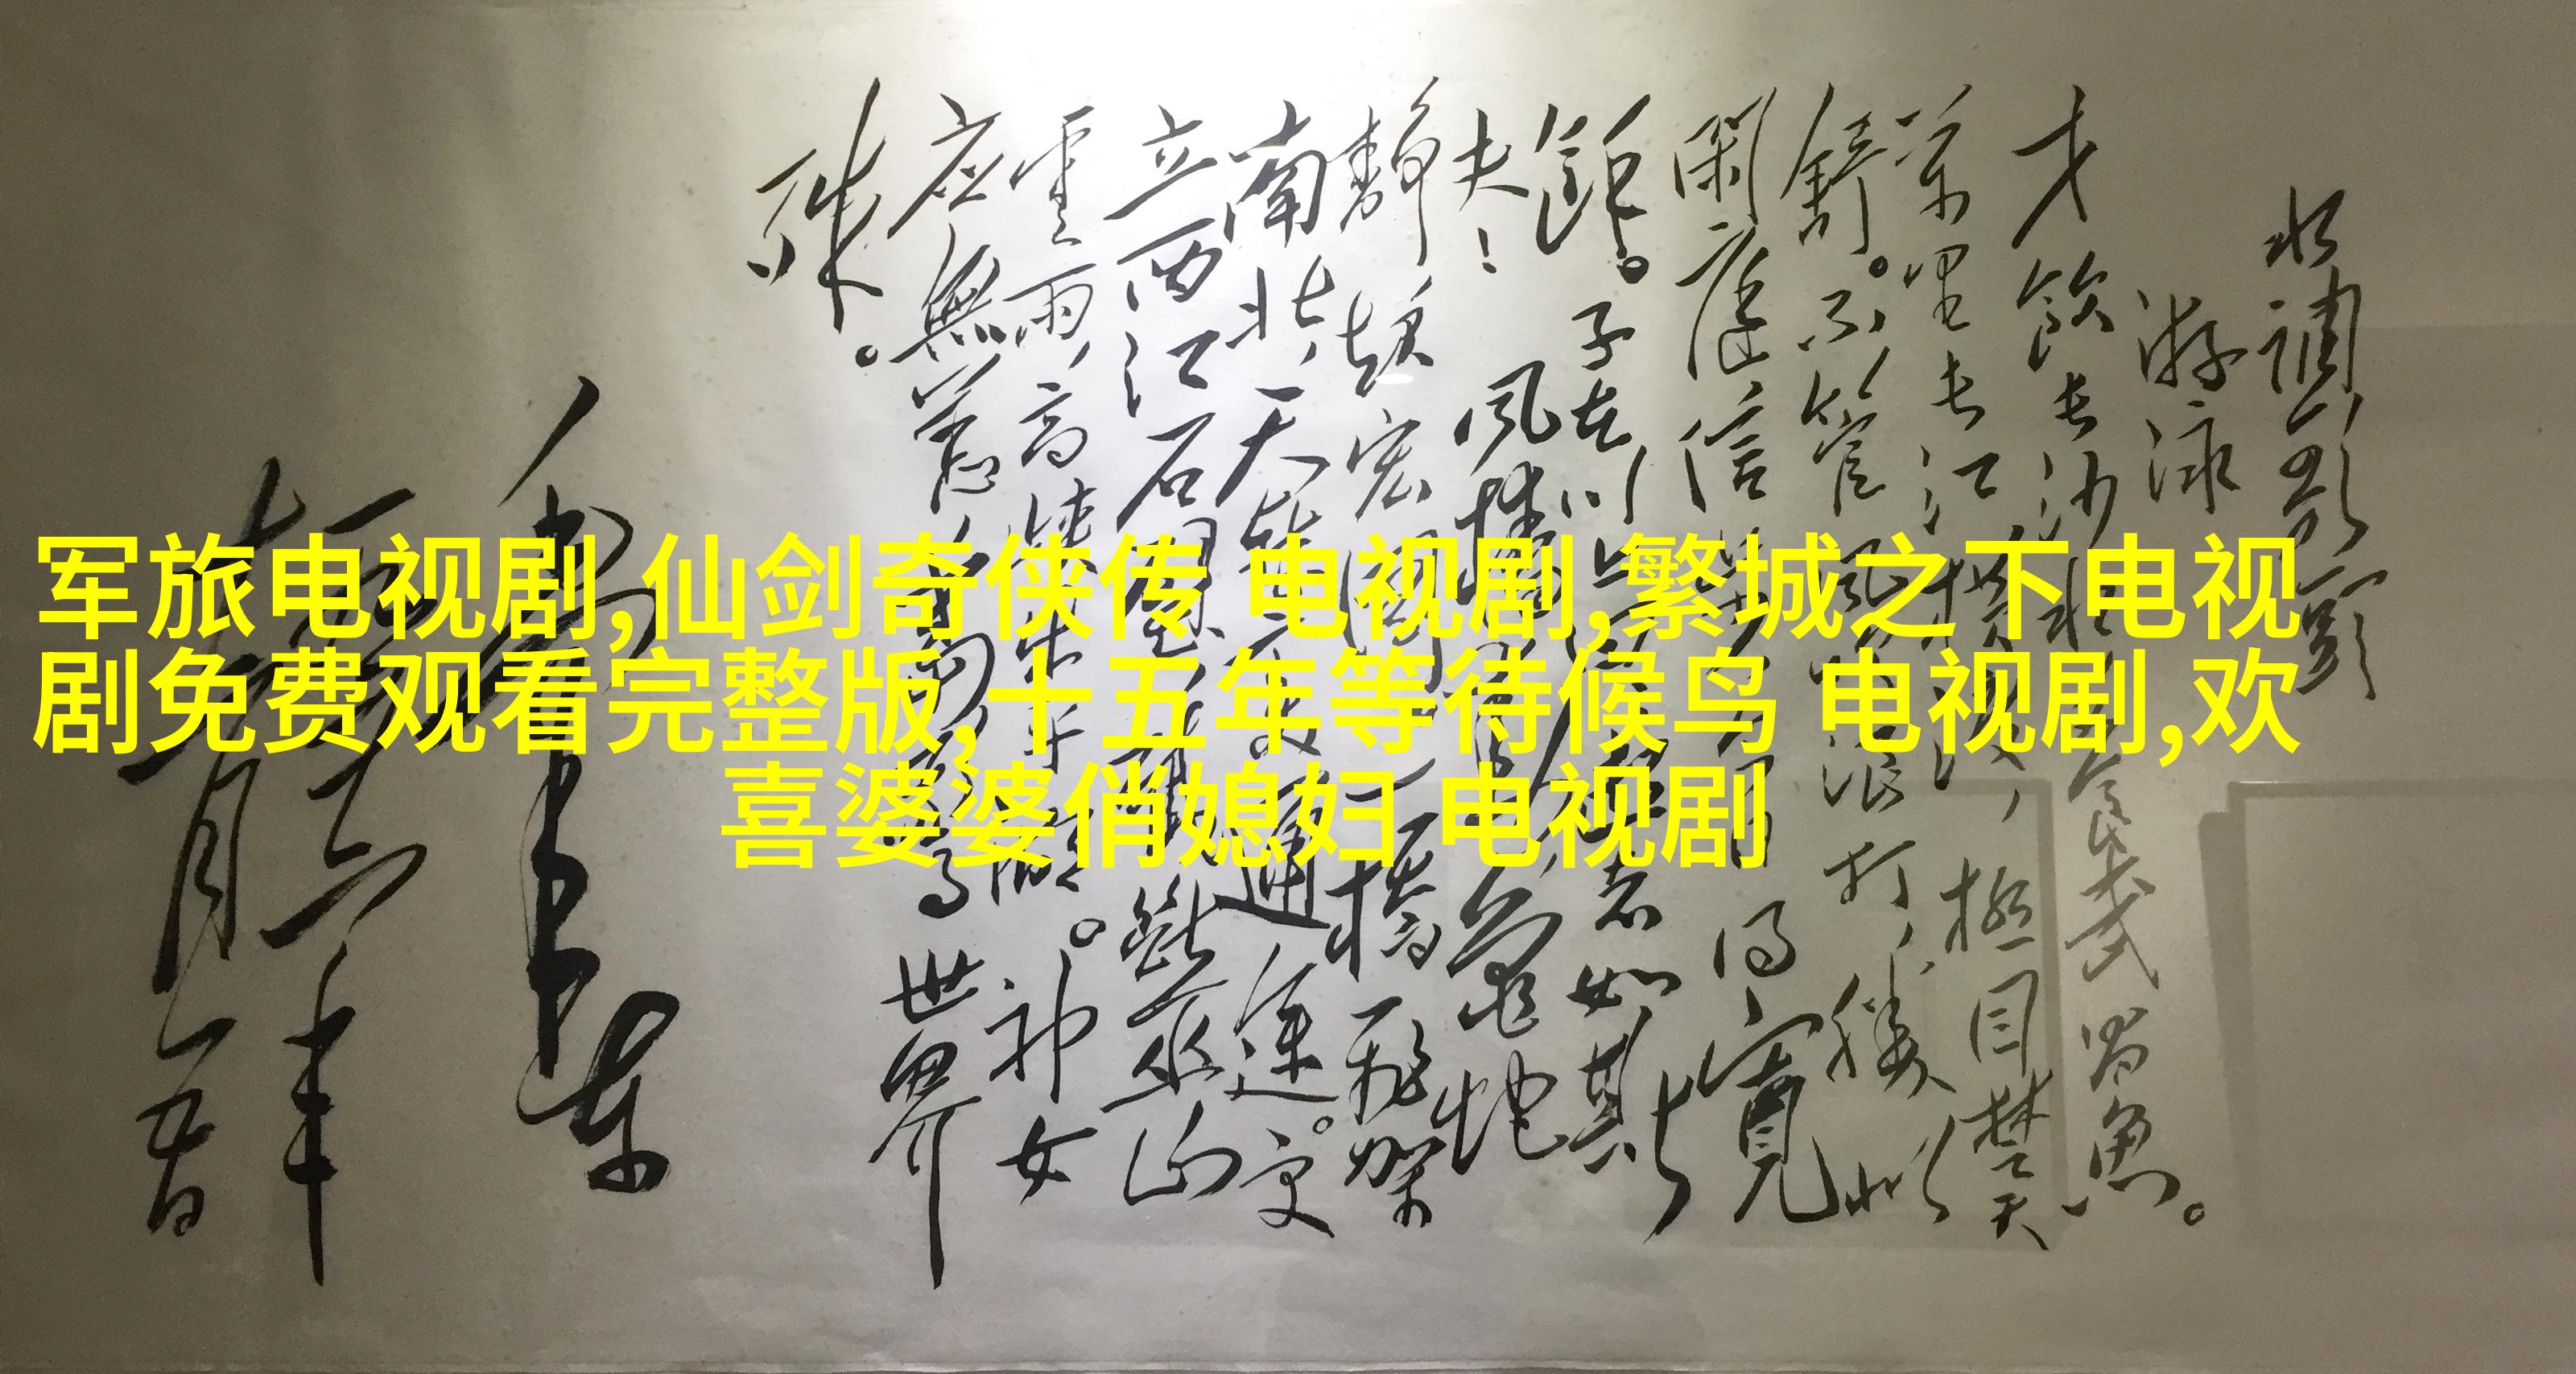 军旅电视剧,仙剑奇侠传 电视剧,繁城之下电视
剧免费观看完整版,十五年等待候鸟 电视剧,欢
喜婆婆俏媳妇 电视剧
水調歌頭
游泳
才飲长沙水,又食武昌魚。
万里长江橫渡,極目楚天
舒。不管風吹浪打,勝似
閑庭信步,今日得寬
餘。子在川上曰:逝者如斯
夫! 風檣動,龜蛇
靜,起宏圖。一橋飛架
南北,天塹变通途。更
立西江石壁,截斷巫山
雲雨,高峡出平湖。神女
应無恙,當驚世界
殊。